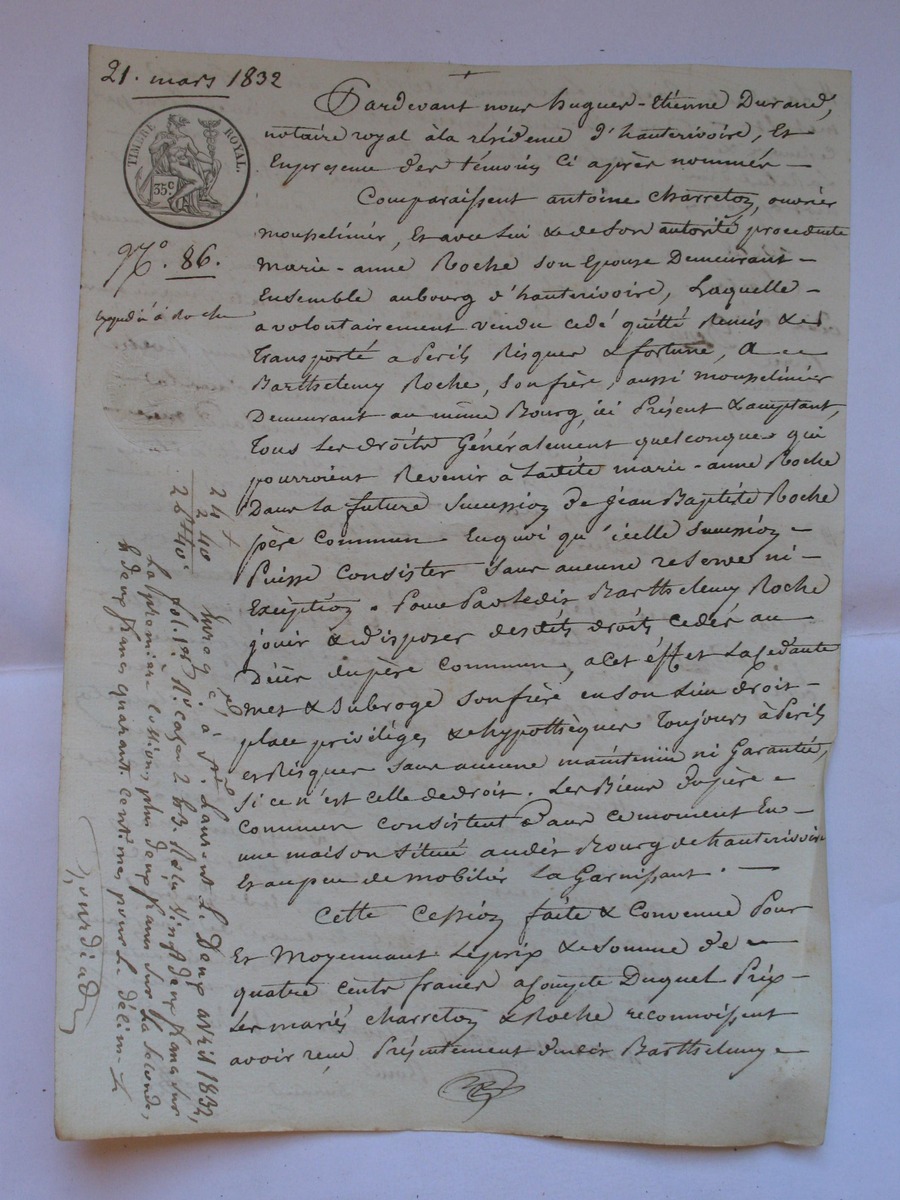 21. mars 1832
TIMBRE ROYAL.
35c.
N.o 86.
Expédié à Roche
Pardevant nous hugues-Etienne Durand,
notaire royal à la résidence d'hauterivoire, Et
Enpresence des témoins Ci après nommés —
Comparaissent antoine Charretoz, ouvrier
mousselinier, Et avec lui & de son autorité procedente
Marie-anne Roche son Epouse Demeurant-
Ensemble aubourg d'hauterivoire, Laquelle -
a volontairement vendu cedé quitté Remis &
Transporté a Perils Risques & fortune, A —
Barthelemy Roche, son frère, aussi mousselinier
Demeurant au même Bourg, ici Présent & acceptant,
Tous Les droits Généralement quelconques qui
pourroient Revenir à Ladite marie-anne Roche
Dans La future Succession De jean Baptiste Roche
père Commun Enquoi qu'icelle succession -
Puisse Consister Sans aucune reserve ni-
Exception. Pour Par Ledit Barthelemy Roche
jouir & disposer desdits droits cedés au
Décès dupère Commun, a cet éffet La Cédante
met & Subroge son frère en son Lieu droit-
place privilèges & hypothèques Toujours à Perils
et Risques sans aucune maintenüe ni Garantie,
Si ce n'est celle de droit. Les Biens dupère -
Commun Consistent Pour ce moment En-
une maison située audit Bourg de hauterivoire
Et au peu de mobilier La Garnissant. —
Cette Cession faite & Convenue Pour
Et Moyennant Leprix & Somme de —
quatre cents francs acompte Duquel Prix-
Les mariés Charretoz & Roche reconnoissent
avoir reçu Présentement dudit Barthelemy -
24 +
2 40
26 40c
Enreg.é à St. Laurent Le Deux avril 1832,
fol. 128 R.o cases 2 & 3. Reçu Vingt deux francs sur
La première cession, plus deux francs sur La seconde,
& deux francs quarante centimes pour Le décime.